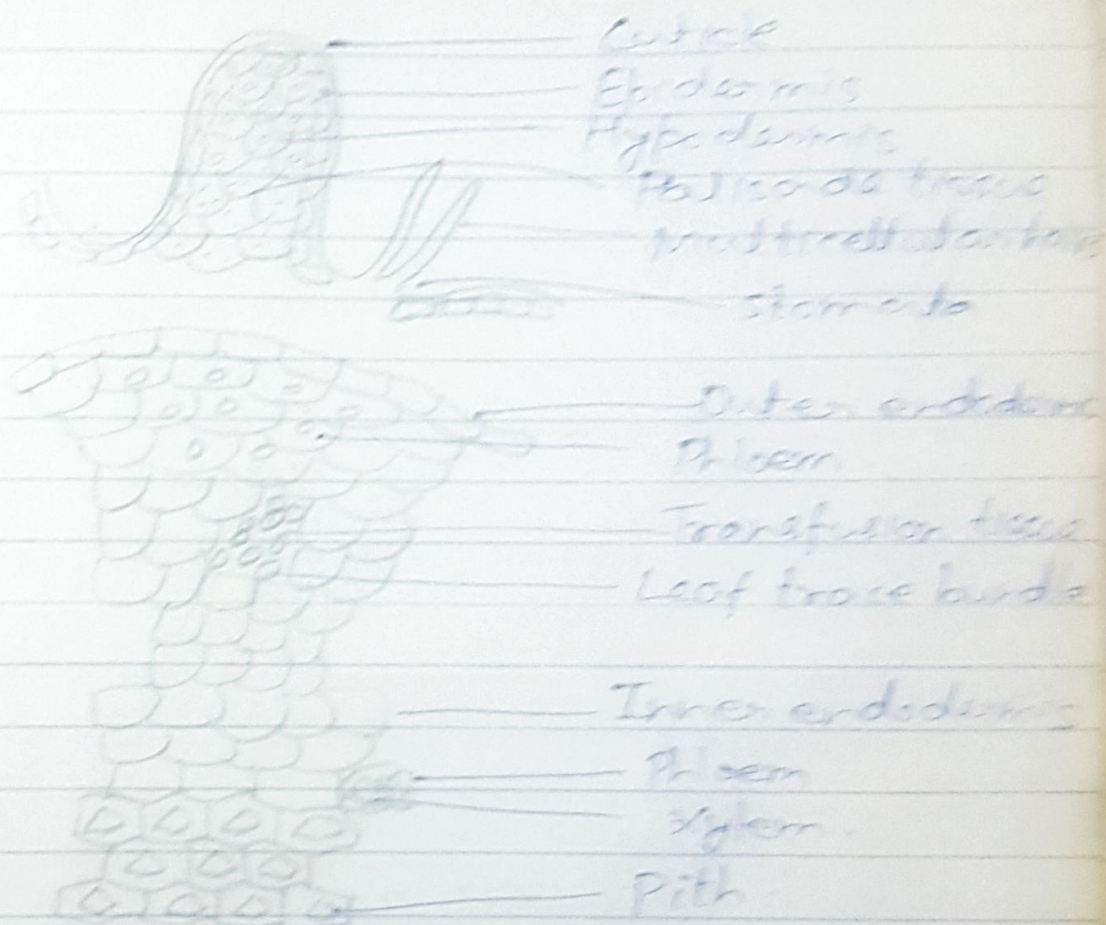 Cuticle
Epidermis
Hypodermis
Palisade tissue
Stomata
Outer endoderm
Phloem
Transfusion tissue
Leaf trace bundle
Inner endodermis
Phloem
Xylem
Pith